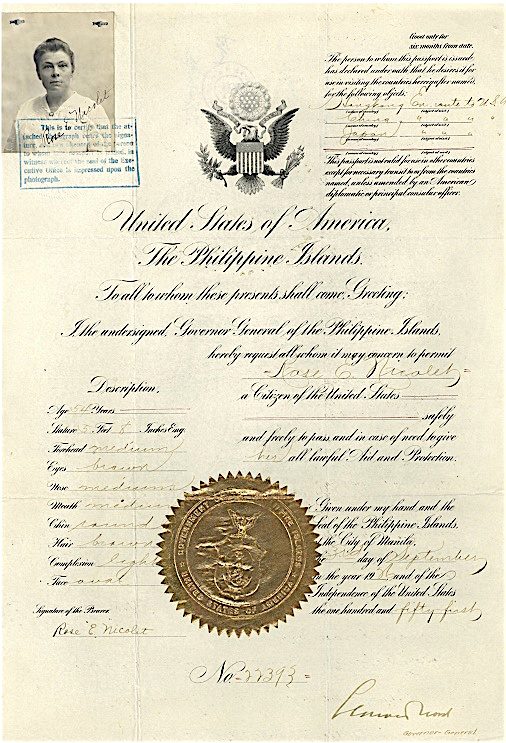 Rose E. Nicolet
This is to certify that the at-
tached photograph
Executive Office is impressed upon the
photograph.
Good only for
six months from date.
The person to whom this passport is issued
has declared under oath that he desires it for
use in visiting the countries hereinafter named,
for the following objects:
Hongkong En route to U.S.A
China " " "
Japan " " "
This passport is not valid for use in other countries
except for necessary transit to or from the countries
named, unless amended by an American
diplomatic or principal consular officer.
United States of America,
The Philippine Islands.
To all to whom these presents shall come, Greeting:
I, the undersigned, Governor General, of the Philippine Islands,
hereby request all whom it may concern to permit
Rose E Nicolet
a Citizen of the United States
safely
and freely to pass, and in case of need to give
her all lawful Aid and Protection.
Description,
Age 54 Years
Stature 5 Feet 8 Inches Eng.
Forehead medium
Eyes brown
Nose medium
Mouth medium
Chin round
Hair brown
Complexion light
Face oval
Signature of the Bearer.
Rose E. Nicolet
UNITED STATES OF AMERICA
Given under my hand and the
Seal of the Philippine Islands,
the City of Manila,
day of September
in the year 19 and of the
Independence of the United States
the one hundred and fifty first
No. 22393
Leonard Wood
Governor-General